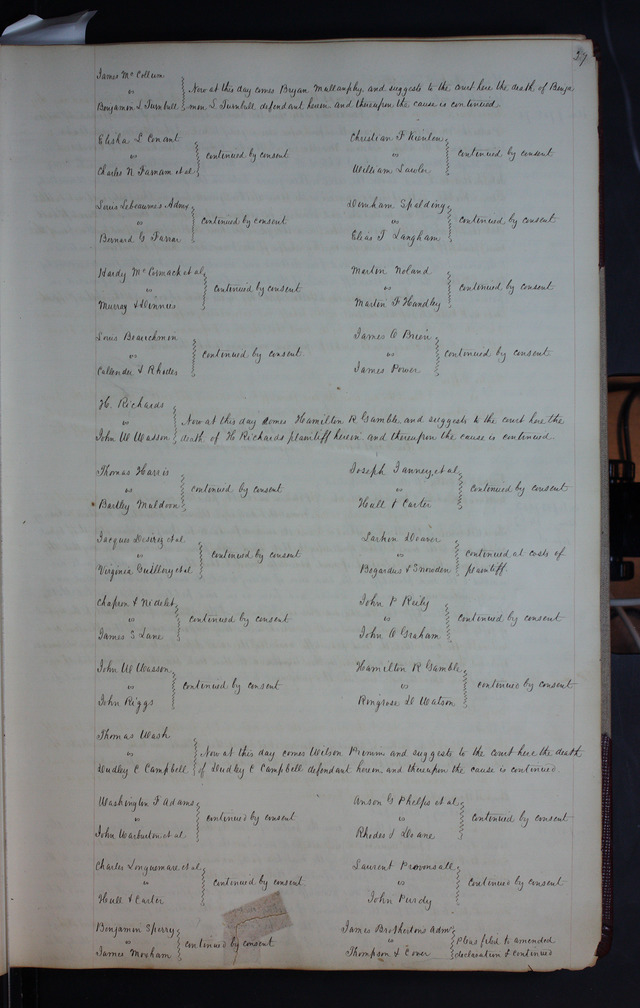 37
James McCollum
vs
Benjamin L Turnbull
Now at this day comes Bryan Mullanphy and suggests to the court here the death of Benja
min L Turnbull defendant herein and thereupon the cause is continued.
Elisha L Conant
vs
Charles N Farnam et al
continued by consent
Christian F
vs
William Lawler
continued by consent
Louis Lebeaumes Admx
vs
Bernard G Farrar
continued by consent
Denham Spalding
vs
Elias T Langham
continued by consent
Hardy McCormack et al
vs
Murray &
continued by consent
Martin Noland
vs
Martin F Handley
continued by consent
Louis
vs
Callender & Rhodes
continued by consent
James O Brien
vs
James Power
continued by consent
H. Richards
vs
John W Wasson
Now at this day comes Hamilton R Gamble and suggests to the court here the
death of H Richards plaintiff herein and thereupon the cause is continued
Thomas Harris
vs
Bartley Muldoon
continued by consent
Joseph Tanney, et al
vs
Hull & Carter
continued by consent
Jacques et al
vs
Virginia Guillory et al
continued by consent
Larkin Deaver
vs
Bogardus & Snowden
continued at costs of
plaintiff
Chapron & Nidelet
vs
James S Lane
continued by consent
John P Reily
vs
John O Graham
continued by consent
John W Wasson
vs
John Riggs
continued by consent
Hamilton R Gamble
vs
Ringrose D Watson
continued by consent
Thomas Wash
vs
Dudley C Campbell
Now at this day comes Wilson Primm and suggests to the court here the death
of Dudley C Campbell defendant herein and thereupon the cause is continued.
Washington F Adams
vs
John Warburton et al
continued by consent
Anson G Phelps et al
vs
Rhodes & Doane
continued by consent
Charles Longuemare et al
vs
Hull & Carter
continued by consent
Laurent Provonsall
vs
John Purdy
continued by consent
Benjamin Sperry
vs
James Morham
continued by consent
James Brothertons Admr
vs
Thompson &
pleas filed to amended
declaration & continued